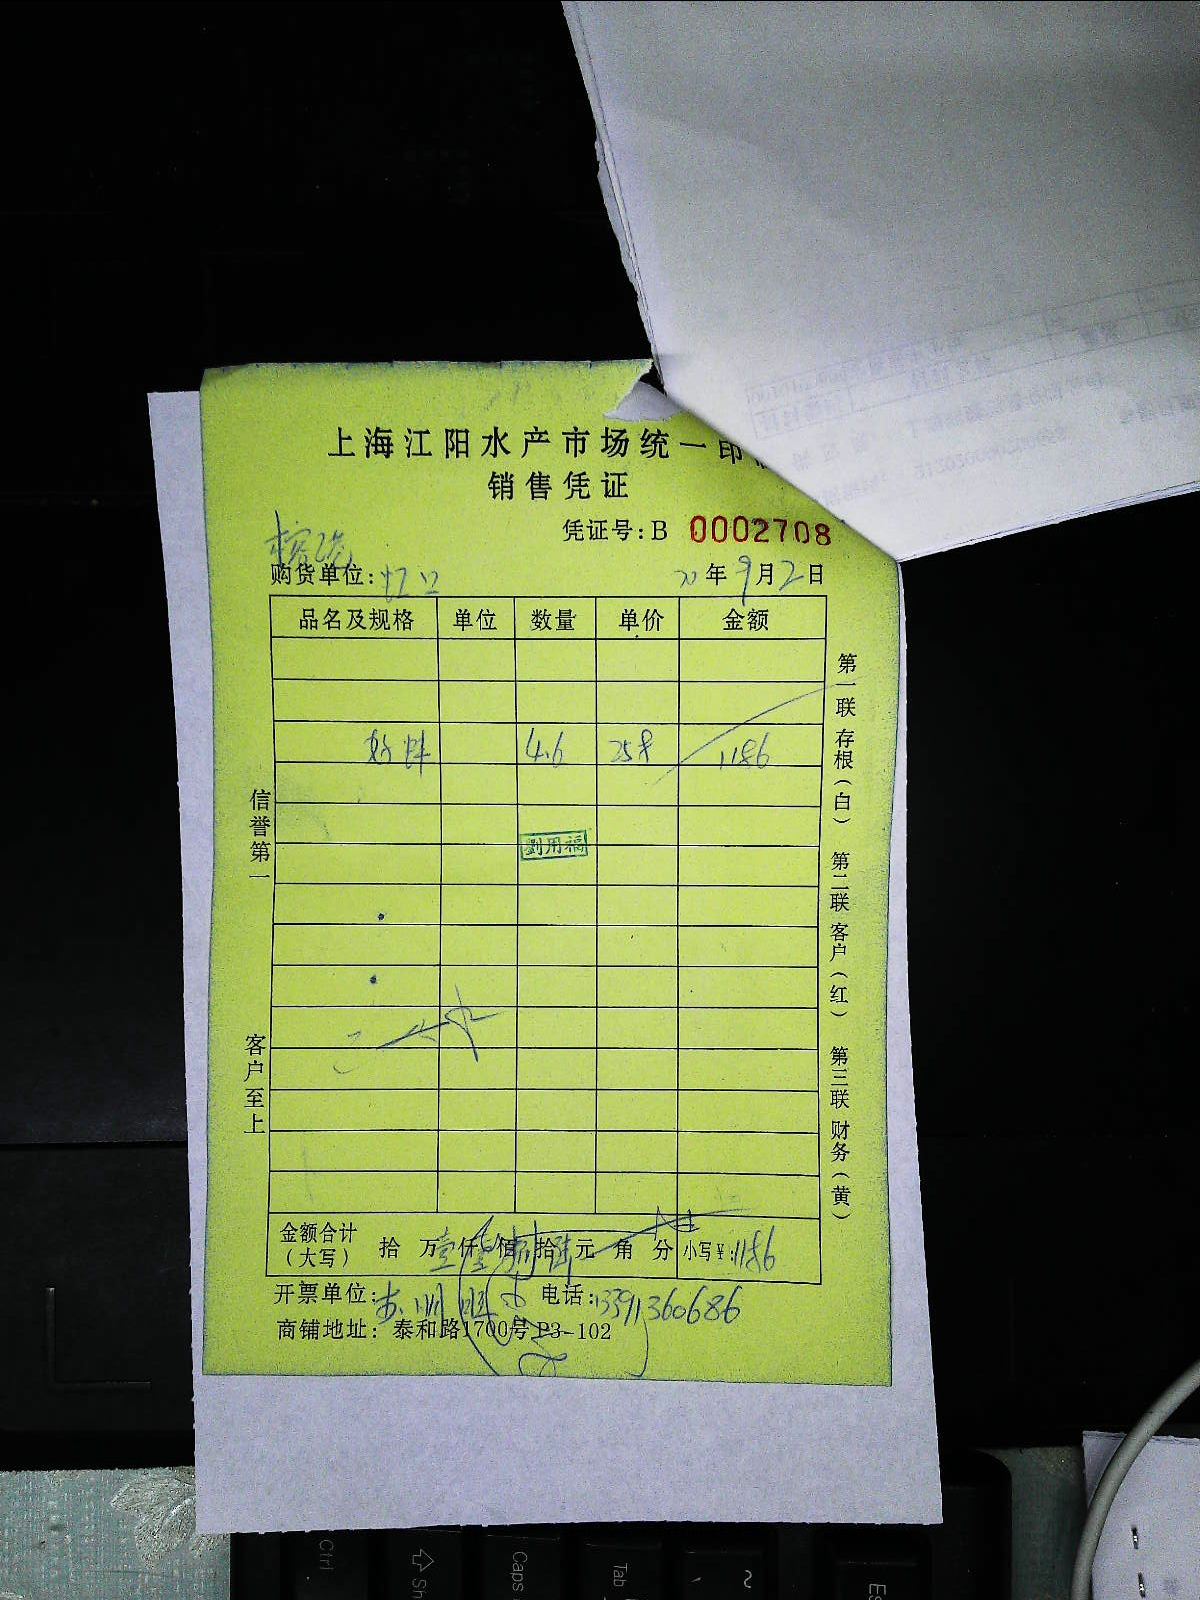 上海江阳水产市场统一印
销售凭证
凭证号:B 0002708
购货单位:虹口 20年9月2日
品名及规格 单位 数量 单价 金额
4.6 1186
劉用福
金额合计(大写) 拾 万壹仟壹佰捌拾陆元 角 分 小写¥:1186
开票单位: 明 电话:13391360686
商铺地址: 泰和路1700号P3-102
信誉第一
客户至上
第一联 存根(白) 第二联 客户(红) 第三联 财务(黄)
Ctrl
Sh
Caps
Tab
~
Es